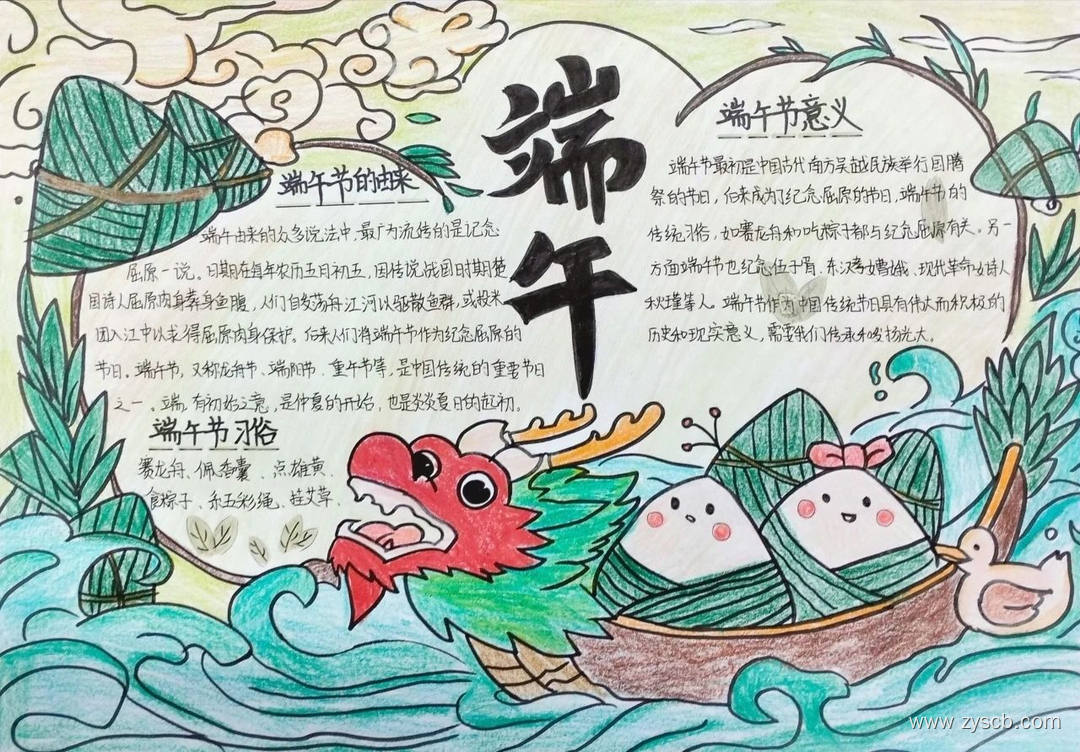 端午
端午节的由来
端午由来的众多说法中，最广为流传的是记念
屈原一说。日期在每年农历五月初五，因传说战国时期楚
国诗人屈原肉身葬身鱼腹，人们自发荡舟江河以驱散鱼群，或投米
团入江中以求得屈原肉身保护。后来人们将端午节作为纪念屈原的
节日。端午节，又称龙舟节、端阳节、重午节等，是中国传统的重要节日
之一。端，有初始之意，是仲夏的开始，也是炎炎夏日的起初。
端午节习俗
赛龙舟、佩香囊、点雄黄、
食粽子、系五彩绳、挂艾草、
端午节意义
端午节最初是中国古代南方吴越民族举行图腾
祭的节日，后来成为了纪念屈原的节日，端午节的
传统习俗，如赛龙舟和吃粽子都与纪念屈原有关。另一
方面端午节也纪念伍子胥、东汉孝女曹娥、现代革命女诗人
秋瑾等人。端午节作为中国传统节日具有伟大而积极的
历史和现实意义，需要我们传承和发扬光大。
www.zyscb.com